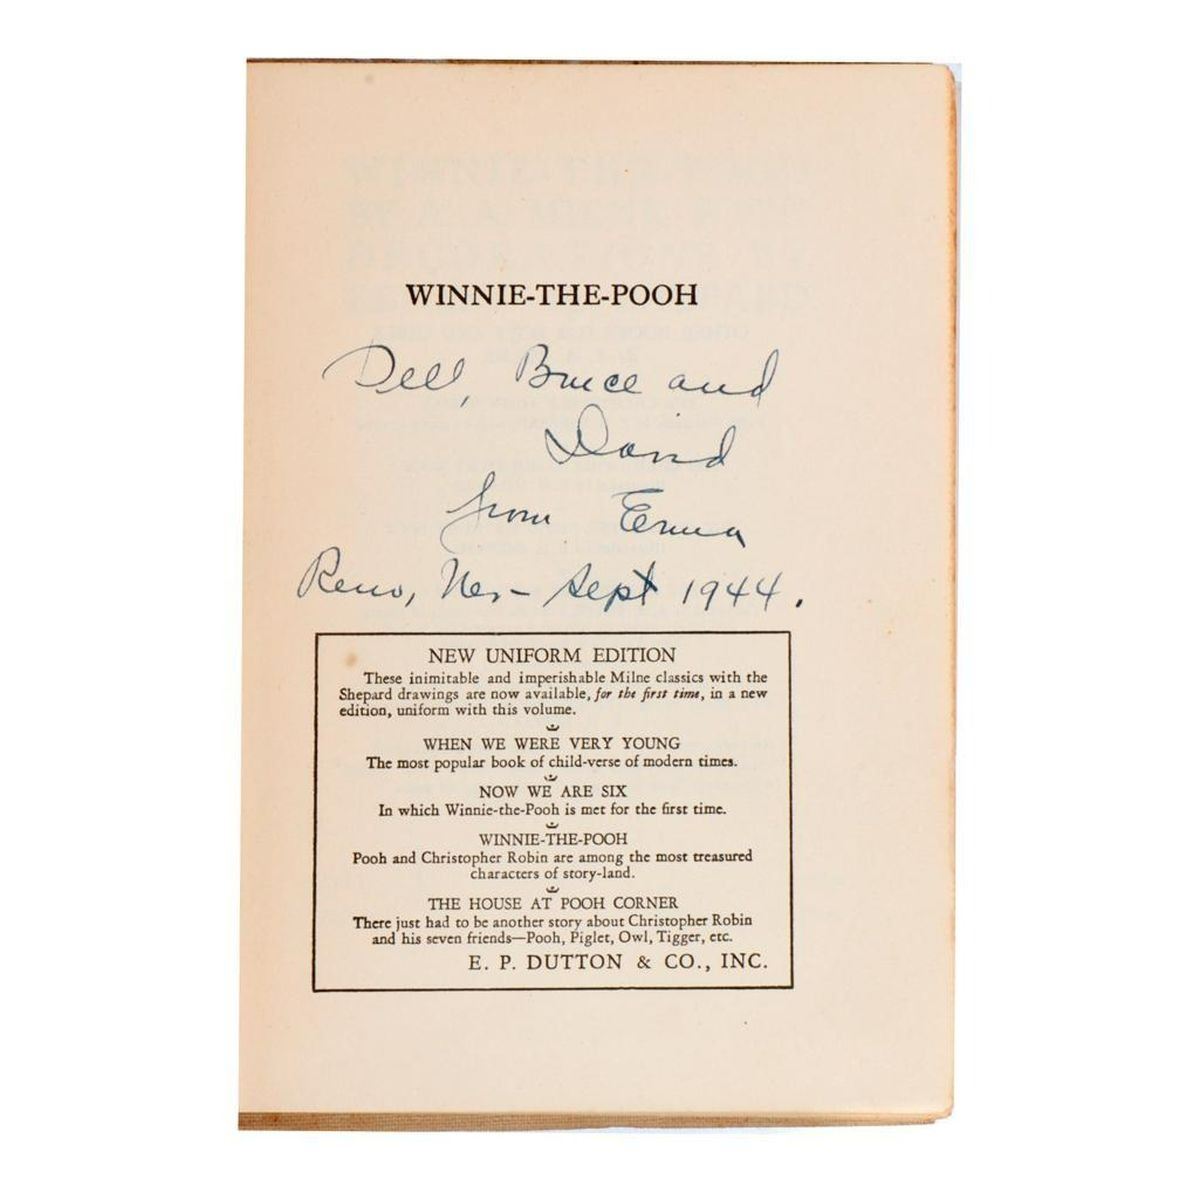 WINNIE-THE-POOH
Dell, Bruce and
David
from Erma
Reno, Nev— Sept 1944.
NEW UNIFORM EDITION
These inimitable and imperishable Milne classics with the
Shepard drawings are now available, for the first time, in a new
edition, uniform with this volume.
WHEN WE WERE VERY YOUNG
The most popular book of child-verse of modern times.
NOW WE ARE SIX
In which Winnie-the-Pooh is met for the first time.
WINNIE-THE-POOH
Pooh and Christopher Robin are among the most treasured
characters of story-land.
THE HOUSE AT POOH CORNER
There just had to be another story about Christopher Robin
and his seven friends—Pooh, Piglet, Owl, Tigger, etc.
E. P. DUTTON & CO., INC.